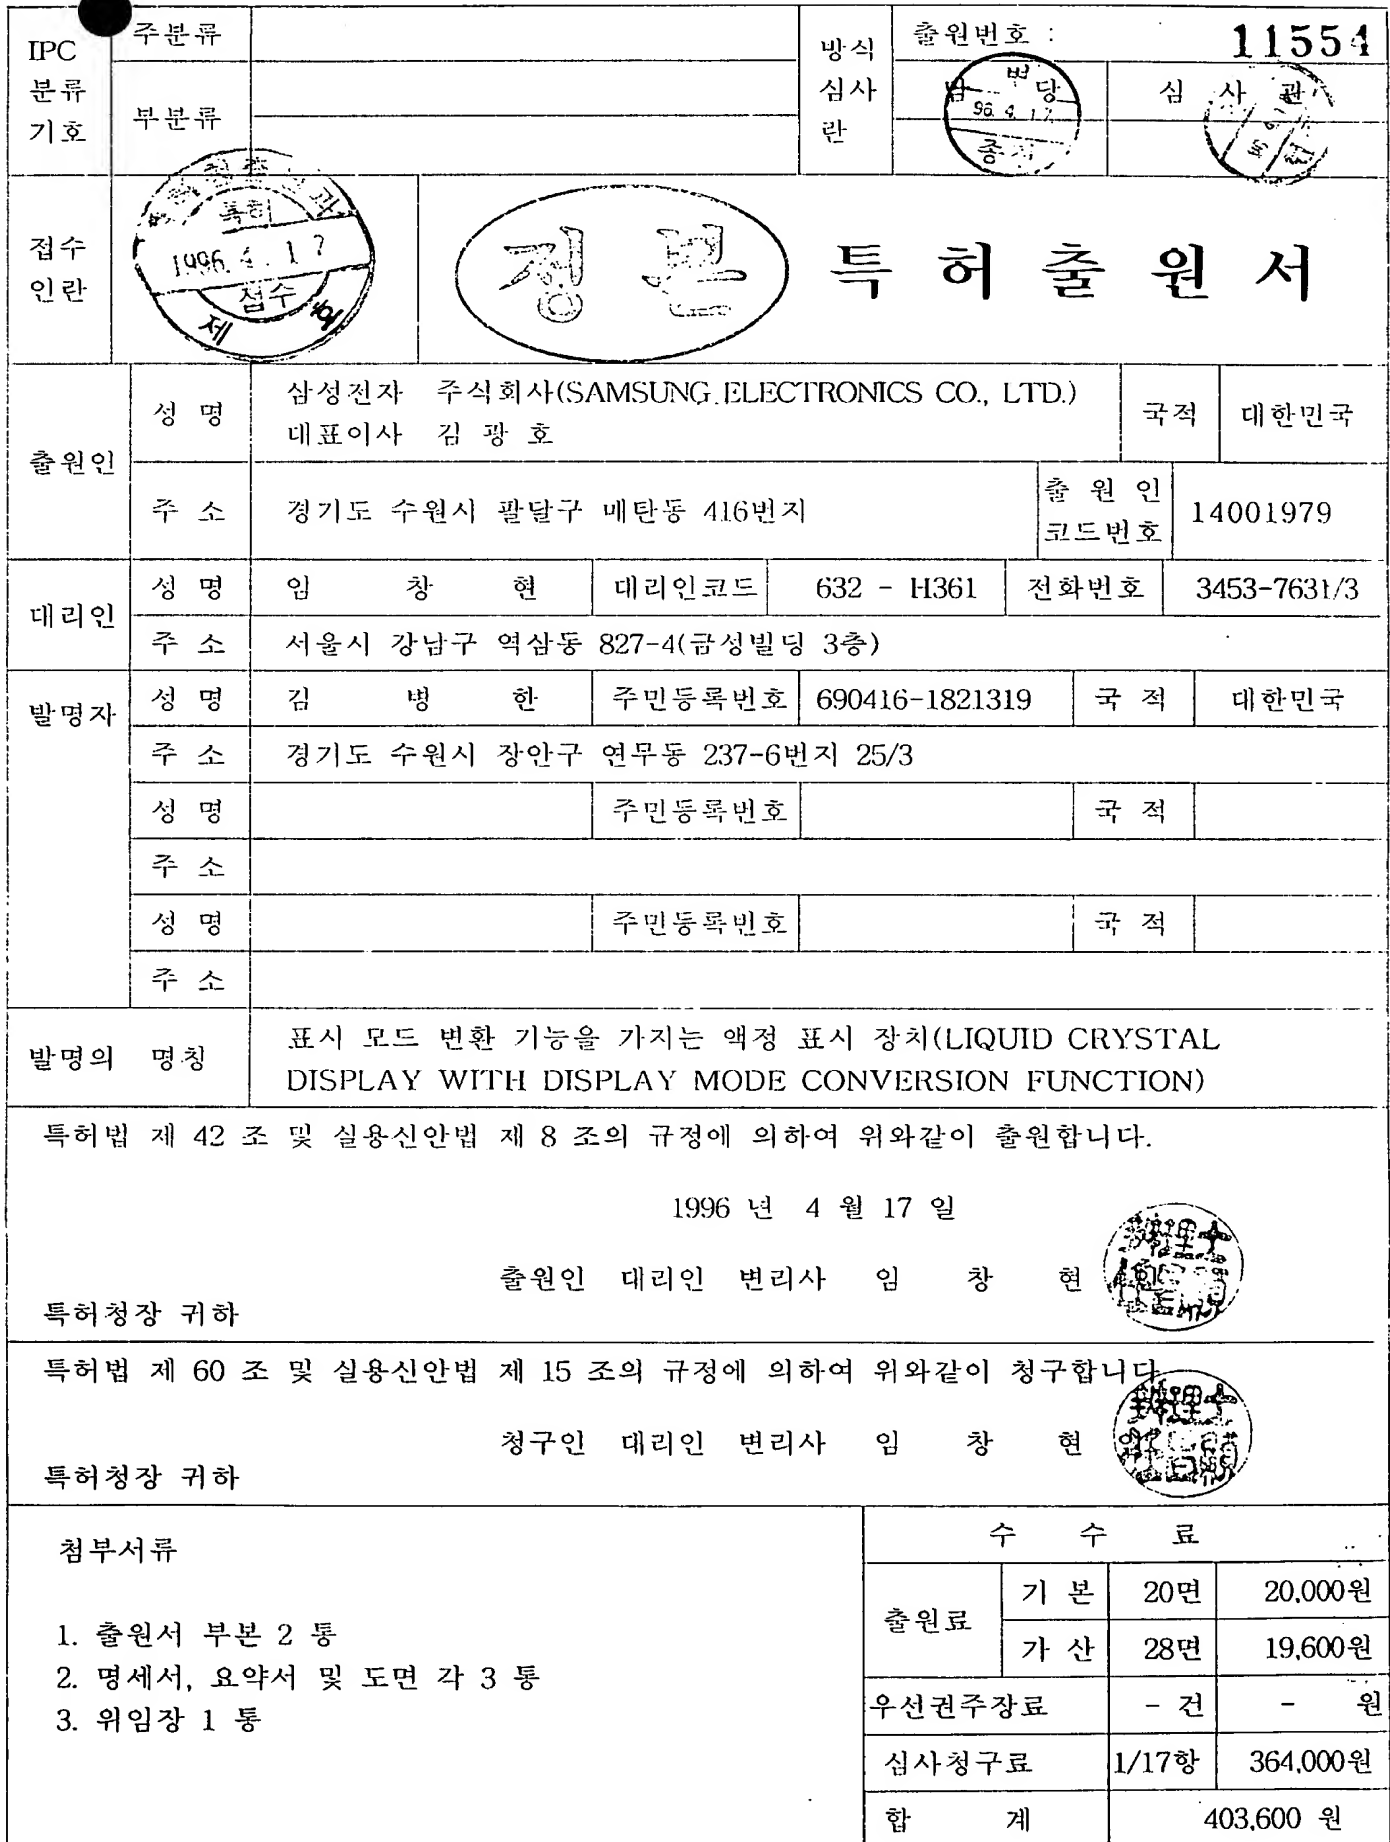 IPC
분류
기호
주분류
부분류
방식
심사
란
출원번호 :
11554
담 당
96. 4. 17.
심 사 관
접수
인란
특허
1996. 4. 17
접수
제 호
정 본
특 허 출 원 서
출원인
성 명
삼성전자 주식회사(SAMSUNG ELECTRONICS CO., LTD.)
대표이사 김 광 호
국적
대한민국
주 소
경기도 수원시 팔달구 매탄동 416번지
출 원 인
코드번호
14001979
대리인
성 명
임 창 현
대리인코드
632 - H361
전화번호
3453-7631/3
주 소
서울시 강남구 역삼동 827-4(금성빌딩 3층)
발명자
성 명
김 병 한
주민등록번호
690416-1821319
국 적
대한민국
주 소
경기도 수원시 장안구 연무동 237-6번지 25/3
성 명
주민등록번호
국 적
주 소
성 명
주민등록번호
국 적
주 소
발명의 명칭
표시 모드 변환 기능을 가지는 액정 표시 장치(LIQUID CRYSTAL
DISPLAY WITH DISPLAY MODE CONVERSION FUNCTION)
특허법 제 42 조 및 실용신안법 제 8 조의 규정에 의하여 위와같이 출원합니다.
1996 년 4 월 17 일
출원인 대리인 변리사 임 창 현
특허청장 귀하
특허법 제 60 조 및 실용신안법 제 15 조의 규정에 의하여 위와같이 청구합니다
청구인 대리인 변리사 임 창 현
특허청장 귀하
첨부서류
1. 출원서 부본 2 통
2. 명세서, 요약서 및 도면 각 3 통
3. 위임장 1 통
수 수 료
출원료
기 본
20면
20,000원
가 산
28면
19,600원
우선권주장료
- 건
- 원
심사청구료
1/17항
364,000원
합 계
403,600 원